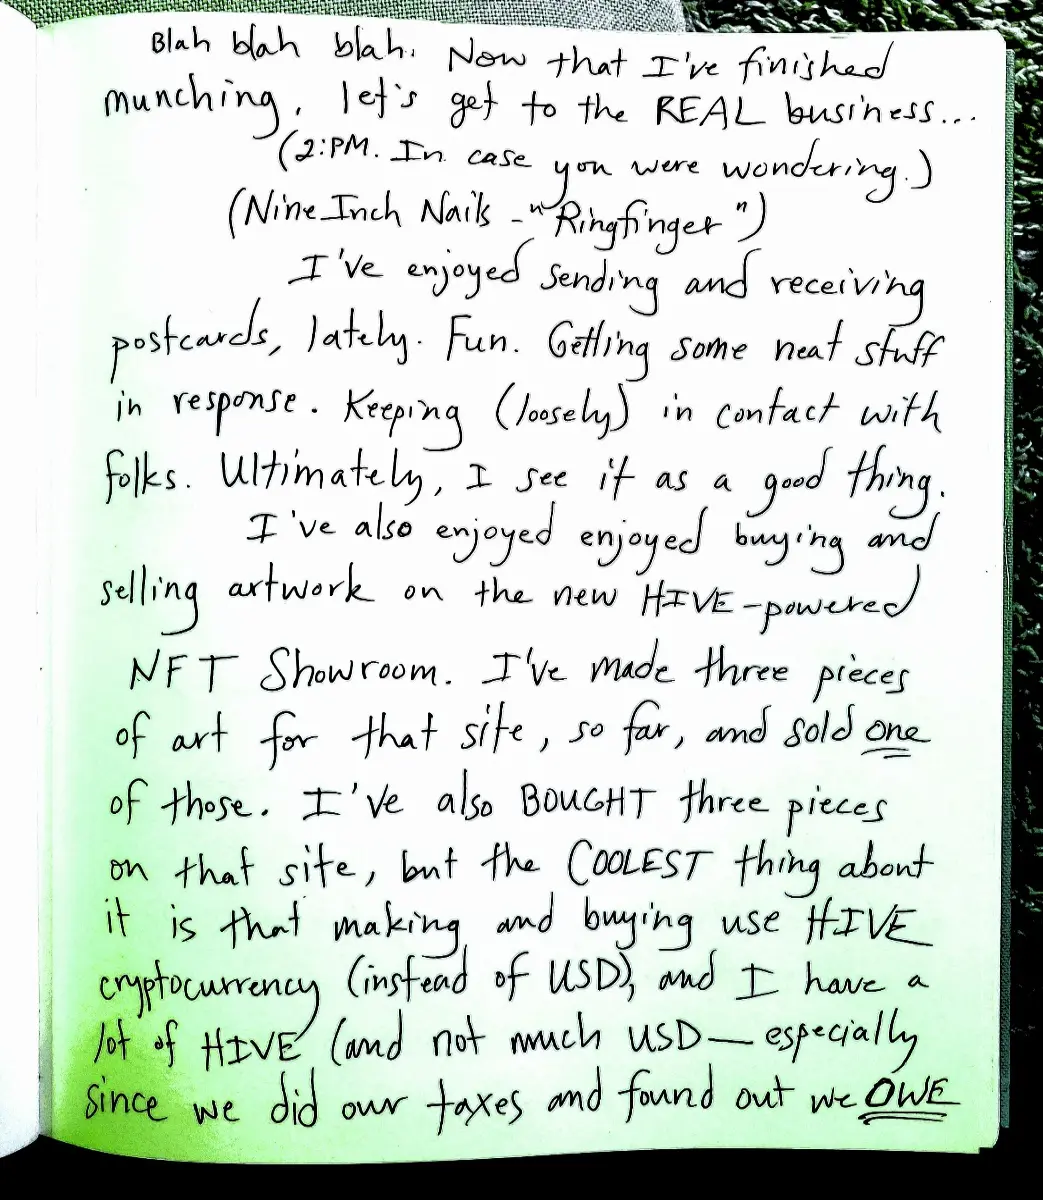 Blah blah blah. Now that I've finished
munching, let's get to the REAL business...
(2:PM. In case you were wondering.)
(Nine Inch Nails - "Ringfinger")
I've enjoyed sending and receiving
postcards, lately. Fun. Getting some neat stuff
in response. Keeping (loosely) in contact with
folks. Ultimately, I see it as a good thing.
I've also enjoyed enjoyed buying and
selling artwork on the new HIVE-powered
NFT Showroom. I've made three pieces
of art for that site, so far, and sold one
of those. I've also BOUGHT three pieces
on that site, but the COOLEST thing about
it is that making and buying use HIVE
cryptocurrency (instead of USD), and I have a
lot of HIVE (and not much USD—especially
since we did our taxes and found out we OWE